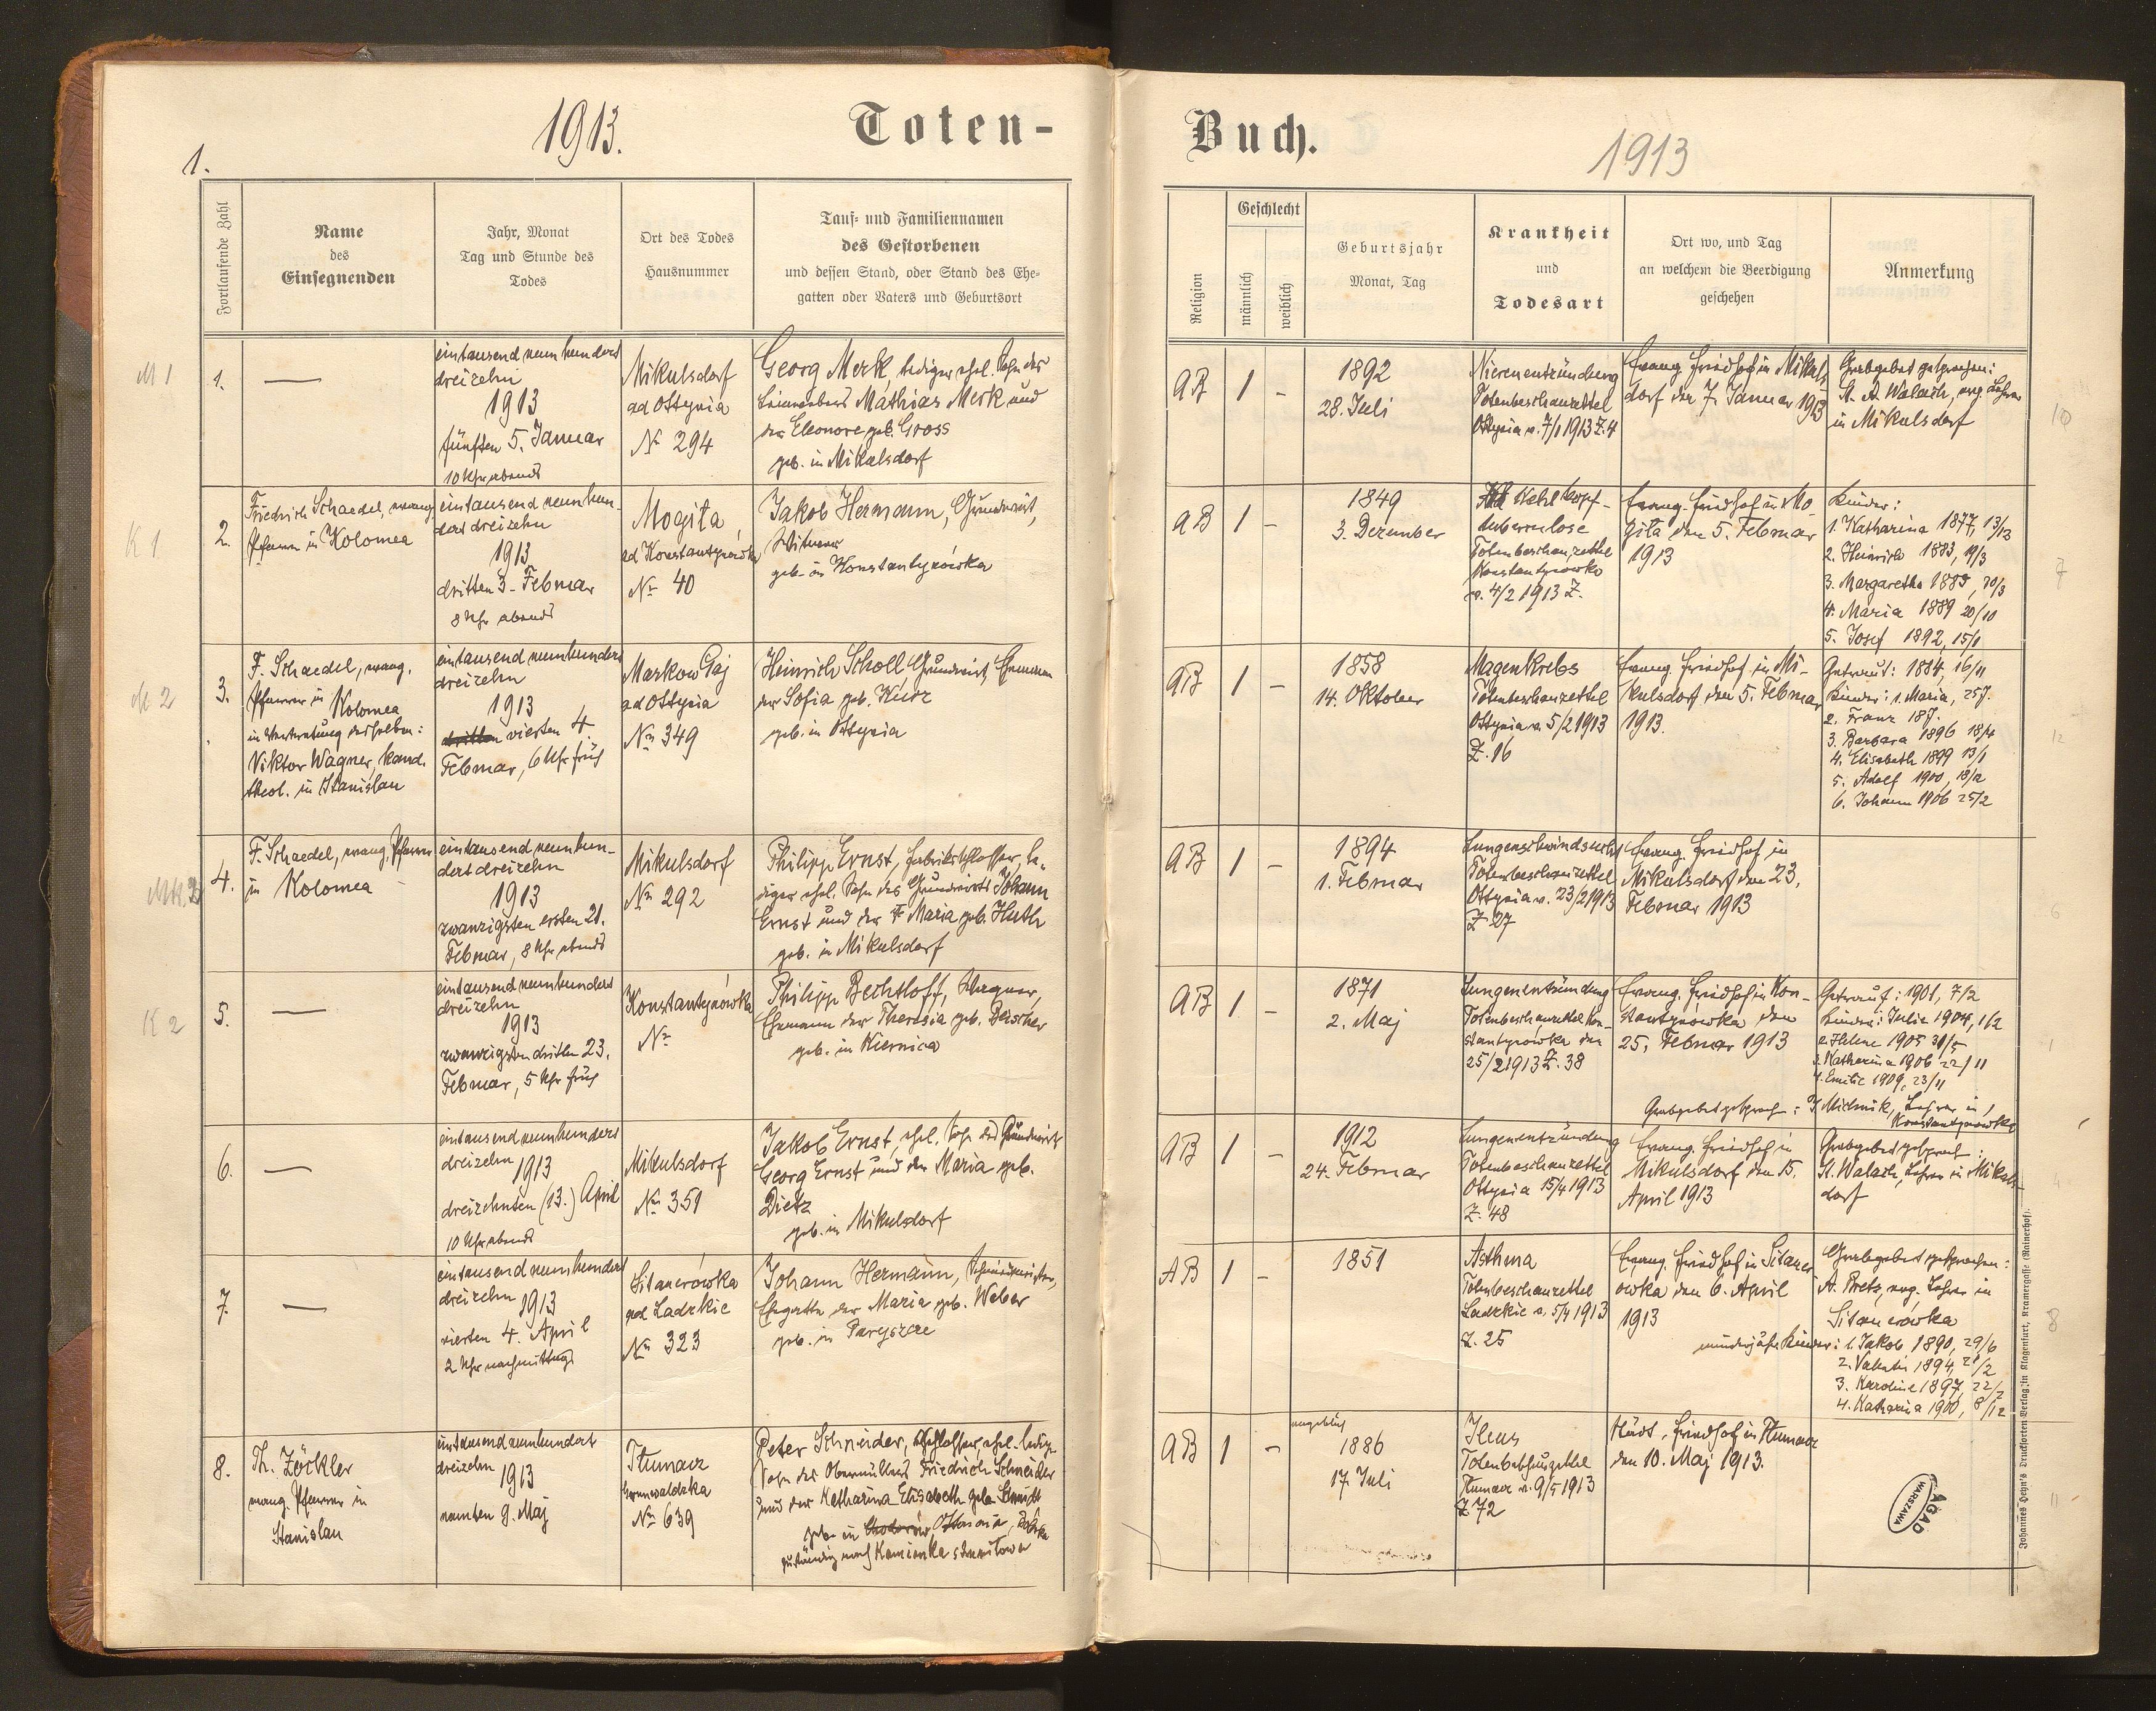 1.
1913.
Toten-
Buch.
1913
Fortlaufende Zahl
Name
des
Einsegnenden
Jahr, Monat
Tag und Stunde des
Todes
Ort des Todes
Hausnummer
Tauf- und Familiennamen
des Gestorbenen
und dessen Stand, oder Stand des Ehe-
gatten oder Vaters und Geburtsort
Religion
Geschlecht
männlich
weiblich
Geburtsjahr
Monat, Tag
Krankheit
und
Todesart
Ort wo, und Tag
an welchem die Beerdigung
geschehen
Anmerkung
M 1
1.
—
eintausend neunhundert
dreizehn
1913
fünften 5. Januar
10 Uhr abends
Mikulsdorf
ad Ottynia
№ 294
Georg Merk, lediger ehel. Sohn des
Mathias Merk und
der Eleonore geb. Gross
geb. in Mikulsdorf
AB
1
-
1892
28. Juli
Nierenentzündung
Totenbeschauzettel
Ottynia v. 7/1 1913 Z. 4
Evang. Friedhof in Mikuls
dorf den 7. Januar 1913
Grabgebet gesprochen:
St. A. Walach, evg. Lehrer
in Mikulsdorf
10
K 1
2.
Friedrich Schaedel, evang.
Pfarrer in Kolomea
eintausend neunhun-
dert dreizehn
1913
dritten 3. Februar
8 Uhr abends
Mogila
ad Konstantynówka
№ 40
Jakob Hermann, Grundwirt,
Witwer
geb. in Konstantynówka
AB
1
-
1849
3. Dezember
Kehlkopf-
tuberculose
Totenbeschauzettel
Konstantynowka
v. 4/2 1913 Z.
Evang. Friedhof in Mo
gila den 5. Februar
1913
Kinder:
1. Katharina 1877, 13/12
2. Heinrich 1883, 19/3
3. Margaretha 1885, 30/3
4. Maria 1889 20/10
5. Josef 1892, 15/1
7
M 2
3.
F. Schaedel, evang.
Pfarrer in Kolomea
in Vertretung desselben:
Viktor Wagner, kand.
theol. in Stanislau
eintausend neunhundert
dreizehn
1913
dritten vierten 4.
Februar, 6 Uhr früh
Markow Gaj
ad Ottynia
№ 349
Heinrich Scholl, Grundwirt, Ehemann
der Sofia geb. Kurz
geb. in Ottynia
AB
1
-
1858
14. Oktober
Magenkrebs
Totenbeschauzettel
Ottynia v. 5/2 1913
Z. 16
Evang. Friedhof in Mi-
kulsdorf den 5. Februar
1913.
Getraut: 1884, 16/11
Kinder: 1. Maria, 25 J.
2. Franz 18 J.
3. Barbara 1896 18/4
4. Elisabeth 1899 13/1
5. Adolf 1900, 18/12
6. Johann 1906 25/2
12
4.
F. Schaedel, evang. Pfarrer
in Kolomea
eintausend neunhun-
dert dreizehn
1913
zwanzigsten ersten 21.
Februar, 8 Uhr abends
Mikulsdorf
№ 292
Philipp Ernst, Fabriksschlosser, le-
diger ehel. Sohn des Grundwirts Johann
Ernst und der Maria geb. Huth
geb. in Mikulsdorf
AB
1
-
1894
1. Februar
Lungenschwindsucht
Totenbeschauzettel
Ottynia v. 23/2 1913
Z. 27
Evang. Friedhof in
Mikulsdorf den 23.
Februar 1913
6
K 2
5.
—
eintausend neunhundert
dreizehn
1913
zwanzigsten dritten 23.
Februar, 5 Uhr früh
Konstantynówka
№
Philipp Bechtloff, Wagner,
Ehemann der Theresia geb. Deischer
geb. in Kiernica
AB
1
-
1871
2. Maj
Lungenentzündung
Totenbeschauzettel Kon-
stantynowka den
25/2 1913 Z. 38
Evang. Friedhof in Kon-
stantynówka den
25. Februar 1913
Getrauf: 1901, 7/2
Kinder: Julie 1904, 1/2
2. Helene 1905 31/5
3. Katharina 1906 22/11
4. Emilie 1909, 23/11
Grabgebet gesproch: J. Michnik, Lehrer in
Konstantynowka
1
6.
—
eintausend neunhundert
dreizehn 1913
dreizehnten (13.) April
10 Uhr abends
Mikulsdorf
№ 351
Jakob Ernst, ehel. Sohn des Grundwirts
Georg Ernst und der Maria geb.
Dietz
geb. in Mikulsdorf
AB
1
-
1912
24. Februar
Lungenentzündung
Totenbeschauzettel
Ottynia 15/4 1913
Z. 48
Evang. Friedhof in
Mikulsdorf den 15.
April 1913
Grabgebet gesproch:
St. Walach, Lehrer in Mikuls-
dorf
4
7.
—
eintausend neunhundert
dreizehn 1913
vierten 4. April
2 Uhr nachmittags
Sitauerówka
ad Ladzkie
№ 323
Johann Hermann,
Ehegatte der Maria geb. Weber
geb. in Paryszcze
AB
1
-
1851
Asthma
Totenbeschauzettel
Ladzkie v. 5/4 1913
Z. 25
Evang. Friedhof in Sitauer
owka den 6. April
1913
Grabgebet gesprochen:
A. Bretz, evg. Lehrer in
Sitauerówka
minderjähr. Kinder: 1. Jakob 1890, 29/6
2. Valentin 1894, 21/2
3. Karoline 1897, 22/2
4. Katharina 1900, 8/12
8
8.
Th. Zöckler
evang. Pfarrer in
Stanislau
eintausend neunhundert
dreizehn 1913
neunten 9. Maj
Tłumacz
Grunwaldzka
№ 639
Peter Schneider, Schlosser, ehel. ledig.
Sohn des Obermüllers Friedrich Schneider
und der Katharina Elisabeth geb. Schmidt
geb. in
zuständig nach Kamionka strumilowa
AB
1
-
angeblich
1886
17. Juli
Ileus
Totenbeschauzettel
Tłumacz v. 9/5 1913
Z 72
Städt. Friedhof in Tłumacz
den 10. Maj 1913.
11
AGAD
WARSZAWA
Johannes Heyn's Drucksorten-Verlag in Klagenfurt, Kramergasse (Rainerhof).